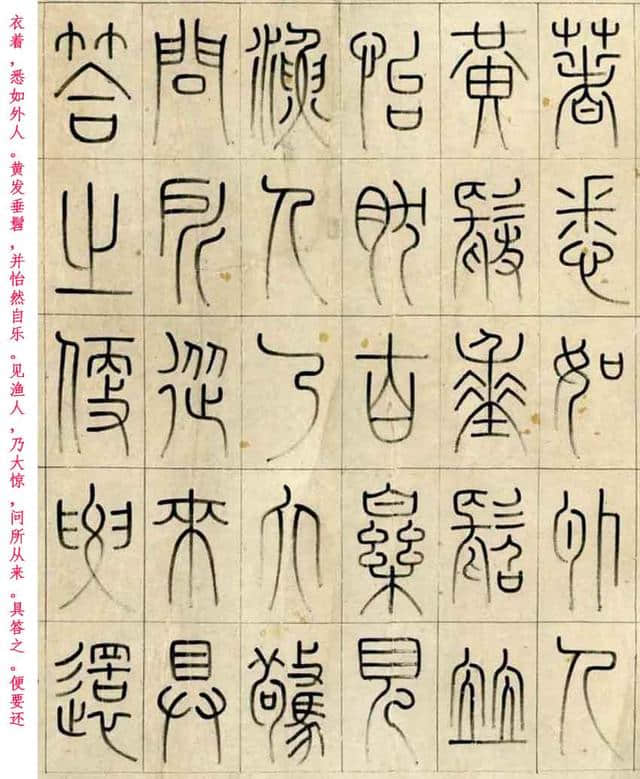 著悉如外人
黃髮垂髫並
怡然自樂見
漁人乃大驚
問所從來具
答之便要還
衣着，悉如外人。黄发垂髫，并怡然自乐。见渔人，乃大惊，问所从来。具答之。便要还